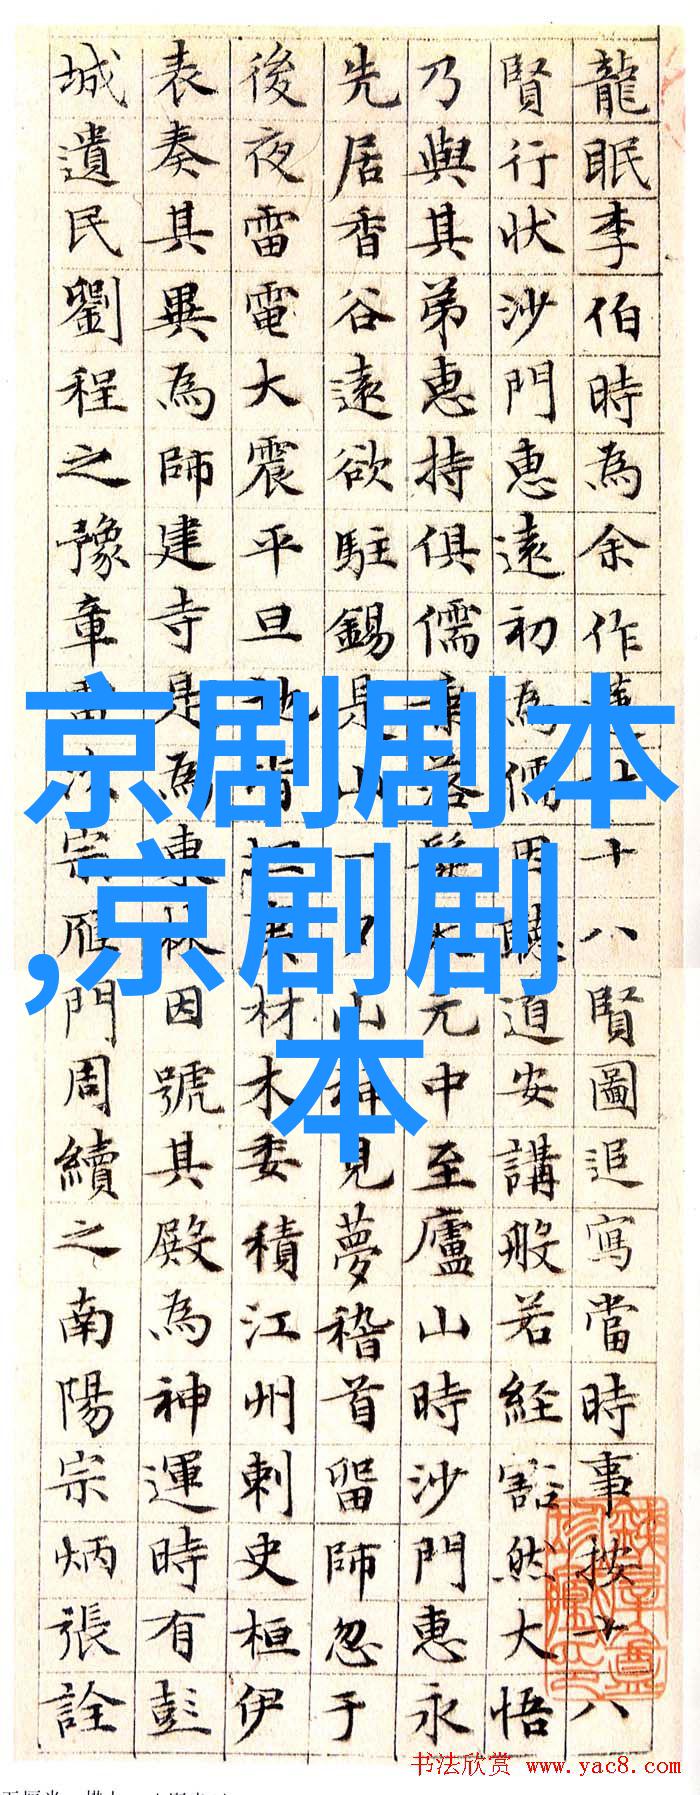 龍眠李伯時為余作十八賢圖追寫當時事按十八
賢行狀沙門惠遠初為儒因聽道安講般若経豁然大悟
乃與其弟惠持俱儒落元中至廬山時沙門惠永
先居香谷遠欲駐錫是山一山神見夢稽首留師忽于
後夜雷電大震平旦地皆材木委積江州刺史桓伊
表奏其異為師建寺是為東林因號其殿為神運時有彭
城遺民劉程之豫章雷次宗雁門周續之南陽宗炳張詮
京剧剧本
,京剧剧
本
书法欣赏 www.yac8.com